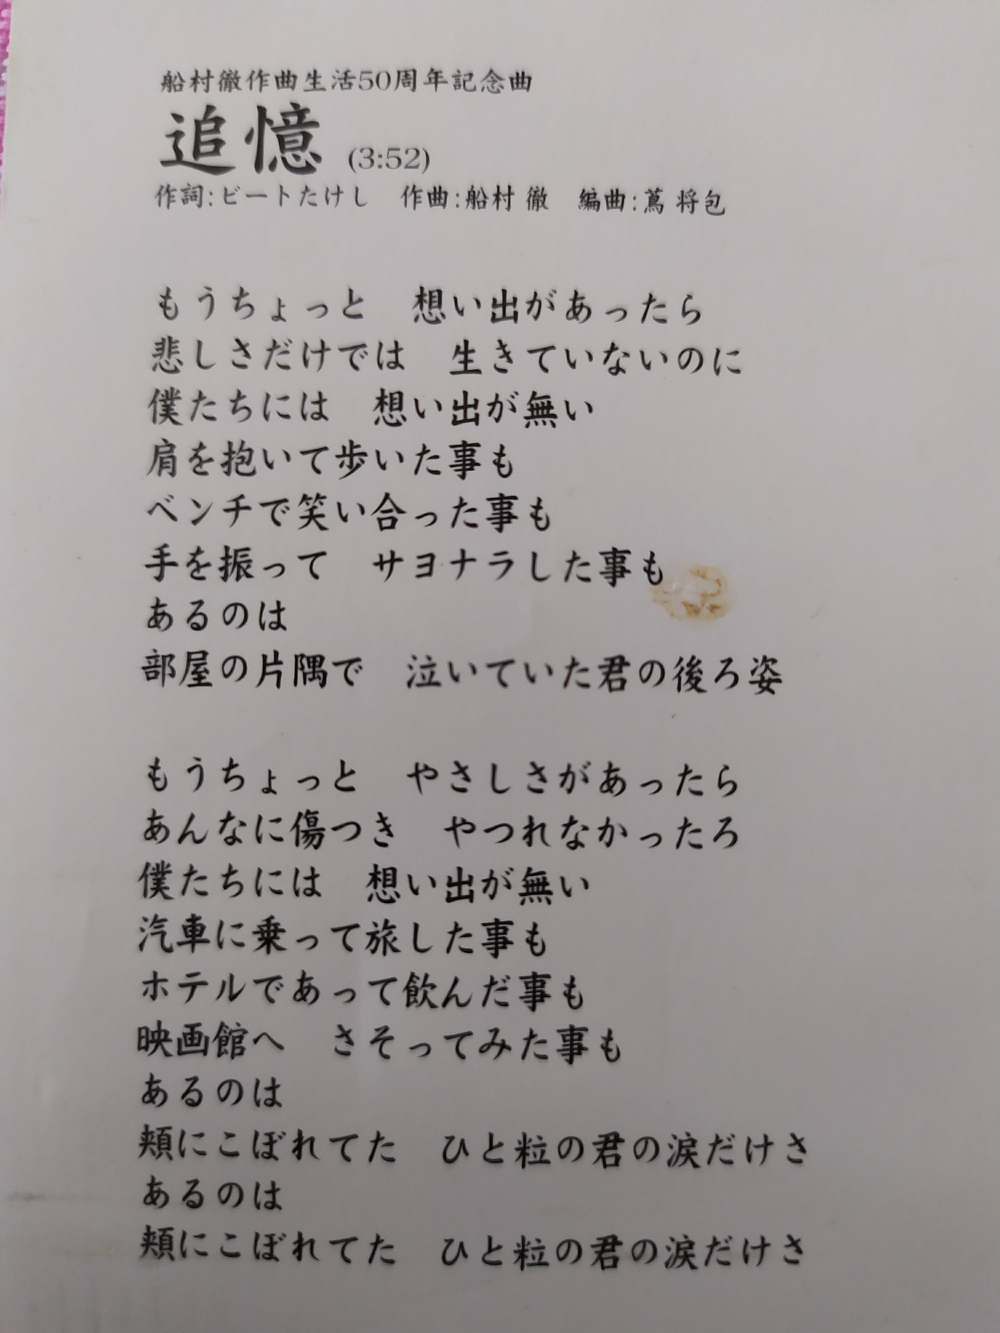 船村徹作曲生活50周年記念曲
追憶 (3:52)
作詞:ビートたけし　作曲:船村 徹　編曲:蔦 将包
もうちょっと　想い出があったら
悲しさだけでは　生きていないのに
僕たちには　想い出が無い
肩を抱いて歩いた事も
ベンチで笑い合った事も
手を振って　サヨナラした事も
あるのは
部屋の片隅で　泣いていた君の後ろ姿
もうちょっと　やさしさがあったら
あんなに傷つき　やつれなかったろ
僕たちには　想い出が無い
汽車に乗って旅した事も
ホテルであって飲んだ事も
映画館へ　さそってみた事も
あるのは
頬にこぼれてた　ひと粒の君の涙だけさ
あるのは
頬にこぼれてた　ひと粒の君の涙だけさ